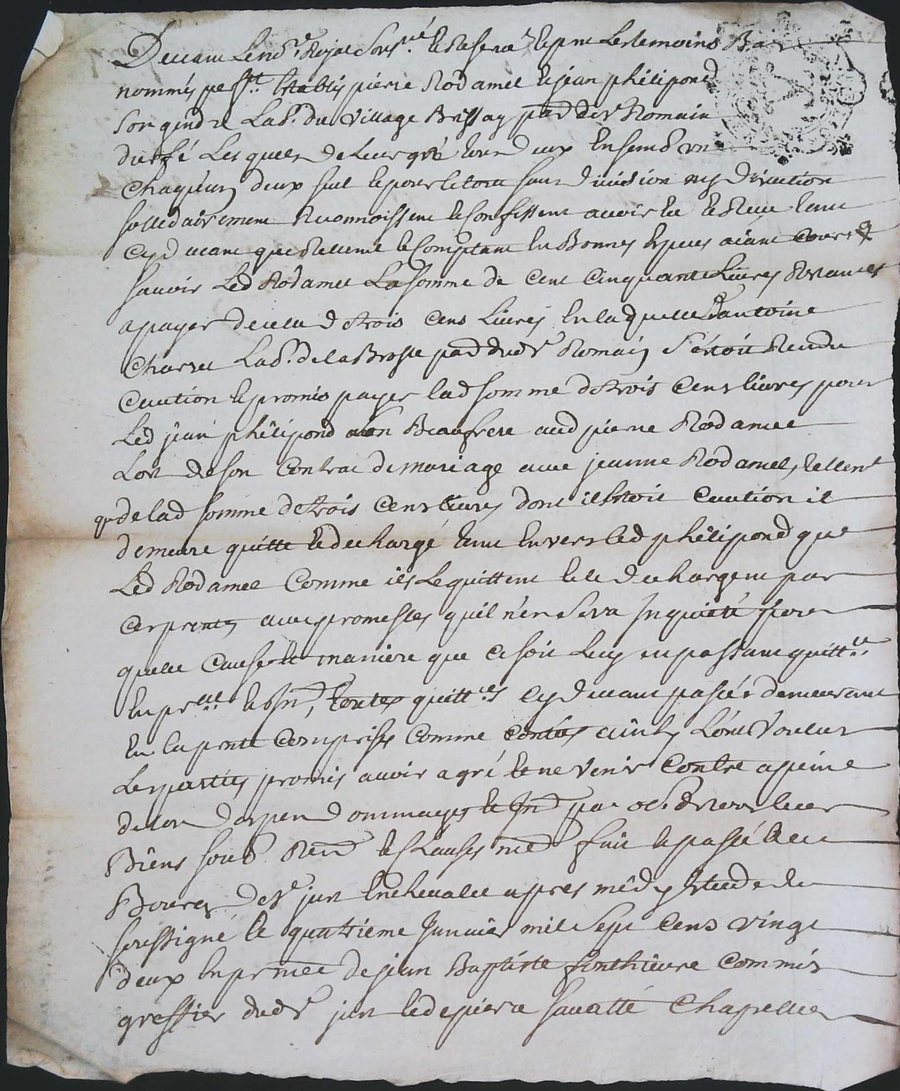 Devant le no.re Royal sous.né et reservé et pnt les temoins Bas
nommés pe.st establis pierre Rodamel et jean phélipond
son gendre Lab.r du village Brissay p.sse de s.t Romain
durfé Lesquels de leur gré tous deux Ensemble un
chaqu'un deux seul et pour le tout sans division ny discution
sollidairement Reconnoissent et confissent avoir eu et Receu tant
cy devant que presentement comptant En Bonnes Especes aiant cours
savoir Led Rodamel La somme de cent cinquante Livres Restantes
a payer de celle de trois cens Livres En laquelle antoine
Lab.r de la Brosse p.sse dud s.t Romain s'estoit Rendu
caution et promis payer lad somme de trois cens livres pour
Led jean phélipond son Beaufrere aud pierre Rodamel
Lors de son contrac de mariage avec jeanne Rodamel, tellem.t
q. de lad somme de trois cens livres dont il Estoit caution il
demeure quitte et dechargé tant Envers led phélipond que
Led Rodamel comme ils le quittent et le dechargent par
ces pntes avec promesses quil n'en sera Inquietté pour
quelle cause et maniere que ce soit Luy en passant quitt.ce
toutes quitt.ces cy devant passées demeurant
En la pnte comprises comme ainsy L'ont voulu
Les parties promis avoir agré et ne venir contre a peine
de tous despens dommages et Int par obl. de tous leurs
Biens soub. Ren. et clauses fait et passé Au
Bourg de s.t jun Enchevalet apres mêdy Estude du
soussigné le quatrieme Janvier mil sept cens vingt
deux En pnce de jean Baptiste commis
greffier dud s.t jun et de pierre Chapellier